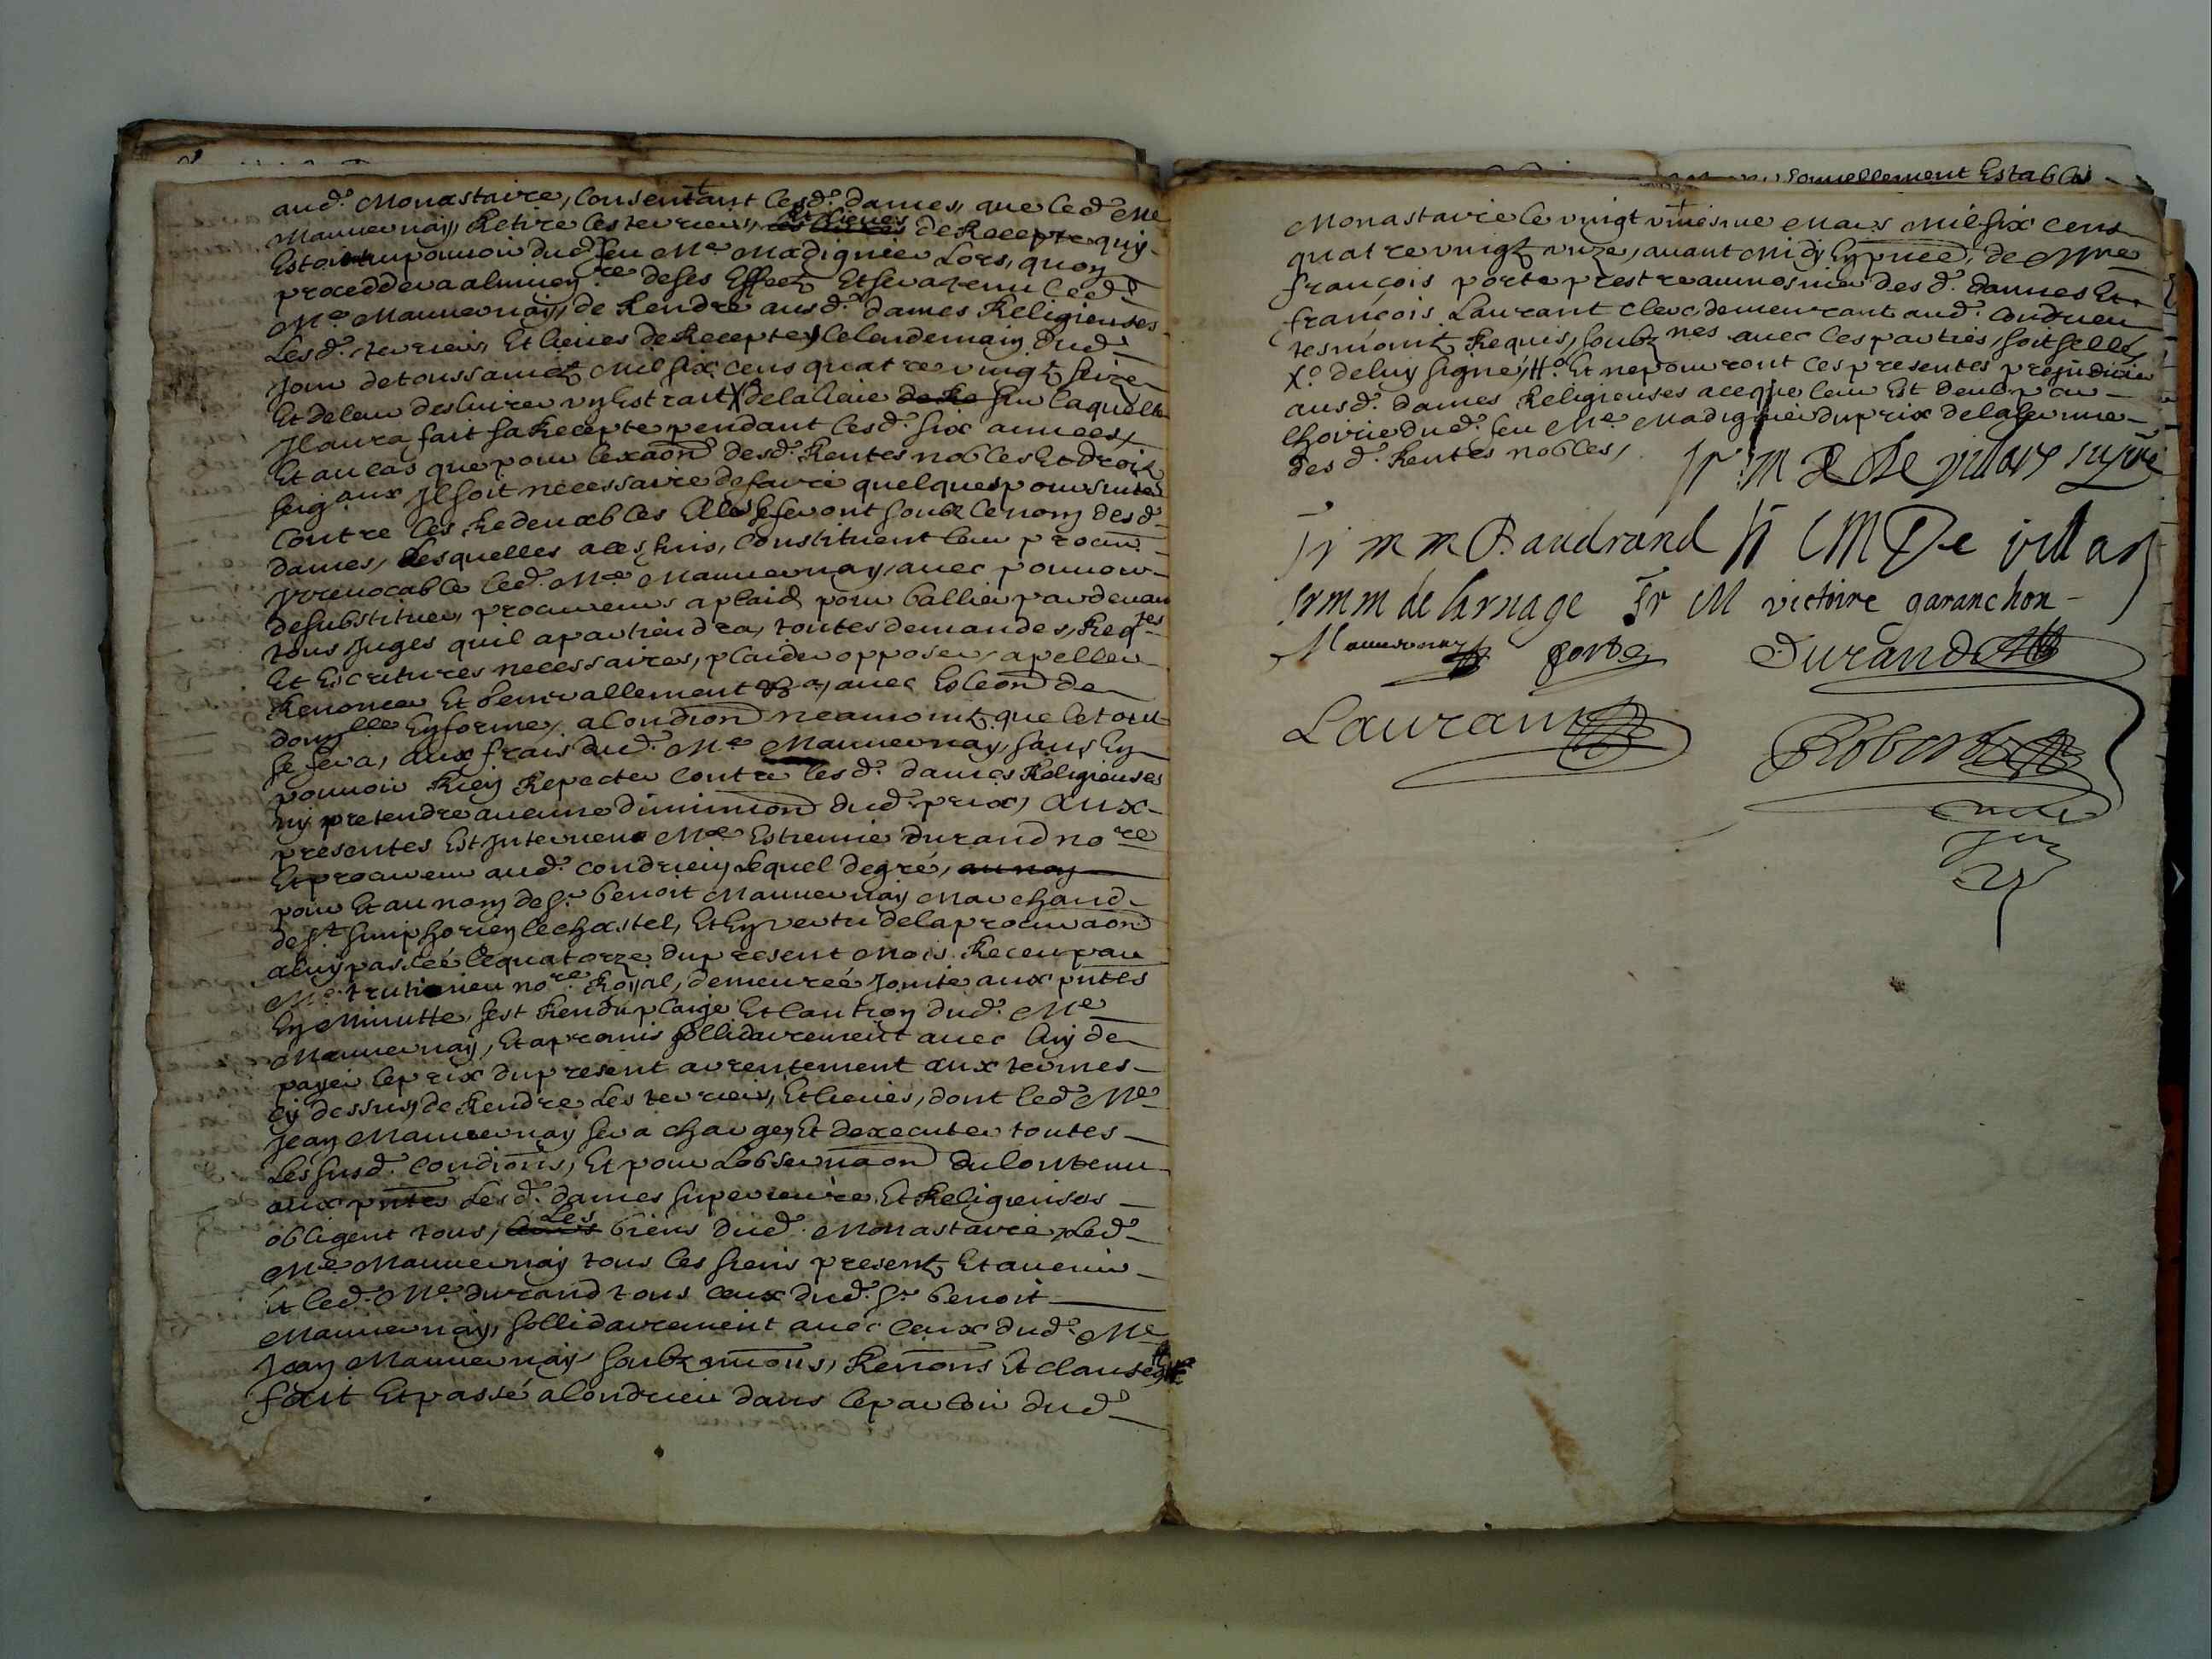 aud.e Monastaire, Consentant lesd.e dames, que led.e Me
Mauvernay, Retire les terriers, Et lieues de Recepte quy
Estoit au pouvoir dud.e feu Me Madignier Lors, quon
proceddera a linven.re de ses Effectz Et sera tenu led.e
Me Mauvernay, de Rendre ausd.e dames Religieuses
Lesd.e terriers, Et lieues de Recepte, le lendemain dud.e
Jour de toussainctz mil six cens quatre vingtz seize
Et de leur deslivrer un Estrait X de la lieue de Re sur laquelle
Il aura fait sa Recepte pendant lesd.e six années,
Et au cas que pour lexaon desd.e Rentes nobles Et droitz
seig.aux Il soit necessaire de faire quelques poursuites
Contre les Redevables Elles se feront soubz le nom desd.e
dames, Lesquelles a ces fins, Constituent leur procur.
Irrevocable led.e Me Mauvernay, avec pouvoir
de substituer, procureurs a plaid pour ballier pardevant
tous Juges quil apartiendra, toutes demandes, Req.tes
Et Escritures necessaires, plaider opposer, apeller
Renoncer Et generallement &a, avec Esleon de
domy.lle En forme, a Condion neamointz que le tout
se fera, aux frais dud.e Me Mauvernay, sans En
pouvoir Rien Repecter Contre lesd.e dames Religieuses
ny pretendre aucune diminuion dud.e prix, aux
presentes Est Intervenu Me Estienne durand no.re
Et procureur aud.e Condrieu, Lequel de gré, au nom
pour Et au nom de Sr benoit Mauvernay Marchand
de St simphorien le chastel, Et En vertu de la procuraon
a luy passée le quatorze du present mois Receu par
Me no.re Royal, demeurée Jointe aux pntes
En Minutte, sest Rendu plaige Et Caution dud.e Me
Mauvernay, Et a promis sollidairement avec luy de
payer le prix du present arrentement aux termes
cy dessus, de Rendre Les terriers, Et lieues, dont led.e Me
Jean Mauvernay sera charge, Et dexecuter toutes
Les susd.e Condions, Et pour Lobservaon du Contenu
aux pntes Lesd.e dames superieure Et Religieuses
obligent tous, leurs Les biens dud.e Monastaire, Led.e
Me Mauvernay tous les siens presentz Et avenir
Et led.e Me durand tous ceux dud.e Sr benoit
Mauvernay, sollidairement avec ceux dud.e Me
Jean Mauvernay soubz Renons Et clauses
fait Et passé a Condrieu dans le parloir dud.e
Personnellement Establis
Monastaire le vingt uniesme Mars mil six cens
quatre vingtz unze, avant midy En pnce, de Mre
françois porte prestre aumosnier desd.e dames Et
françois Laurant clerc demeurant aud.e Condrieu
tesmointz Requis, soubz.nes avec les parties, soit sellé,
X.o de luy signé, #.o Et ne pourront ces presentes prejudicier
ausd.e dames Religieuses a ce que leur Est deub par
lhoirie dud.e feu Me Madignier du prix de la ferme
desd.e Rentes nobles,
Sr M De Villars supre
Sr m m Baudrand Sr C M De villars
Sr m m de larnage Sr M victoire garanchon
Mauvernay porte Durand
Laurant
Robert